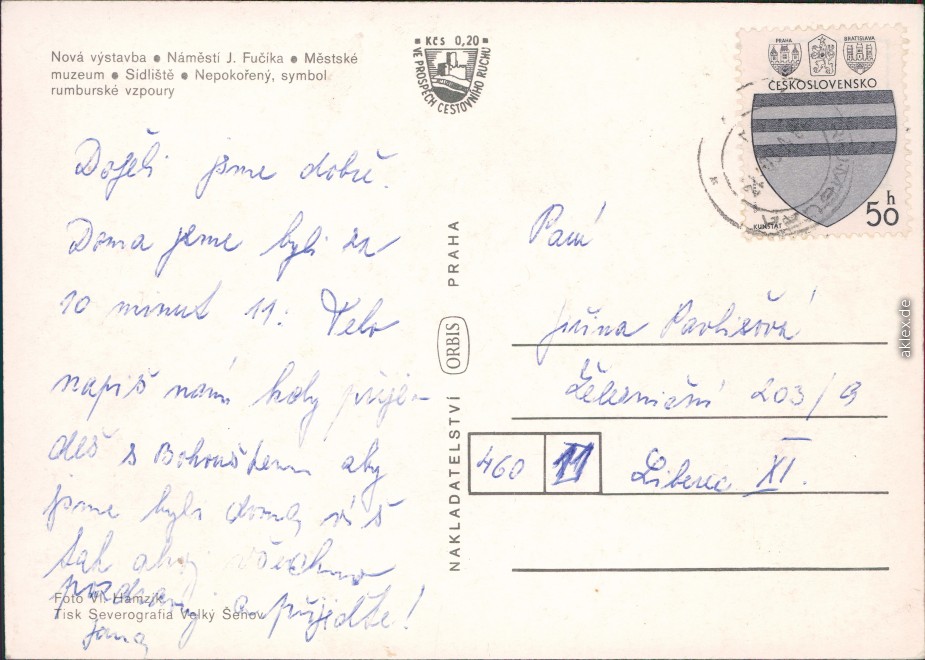 Nová výstavba ● Náměstí J. Fučíka ● Městské
muzeum ● Sídliště ● Nepokořený, symbol
rumburské vzpoury
Kčs 0,20
VE PROSPĚCH CESTOVNÍHO RUCHU
PRAHA
BRATISLAVA
ČESKOSLOVENSKO
KUNŠTÁT
50 h
Dojeli jsme dobře.
Doma jsme byli za
10 minut 11.
napiš nám kdy přije-
deš s Bohouškem aby
jsme byli doma, víš
tak ahoj všechno
pozdravuj a přijeďte!
Jana
Foto Vl. Hamzík
Tisk Severografia Velký Šenov
NAKLADATELSTVÍ ORBIS PRAHA
Paní
Jiřina
Železniční 203/9
460 11 Liberec XI.
aklex.de